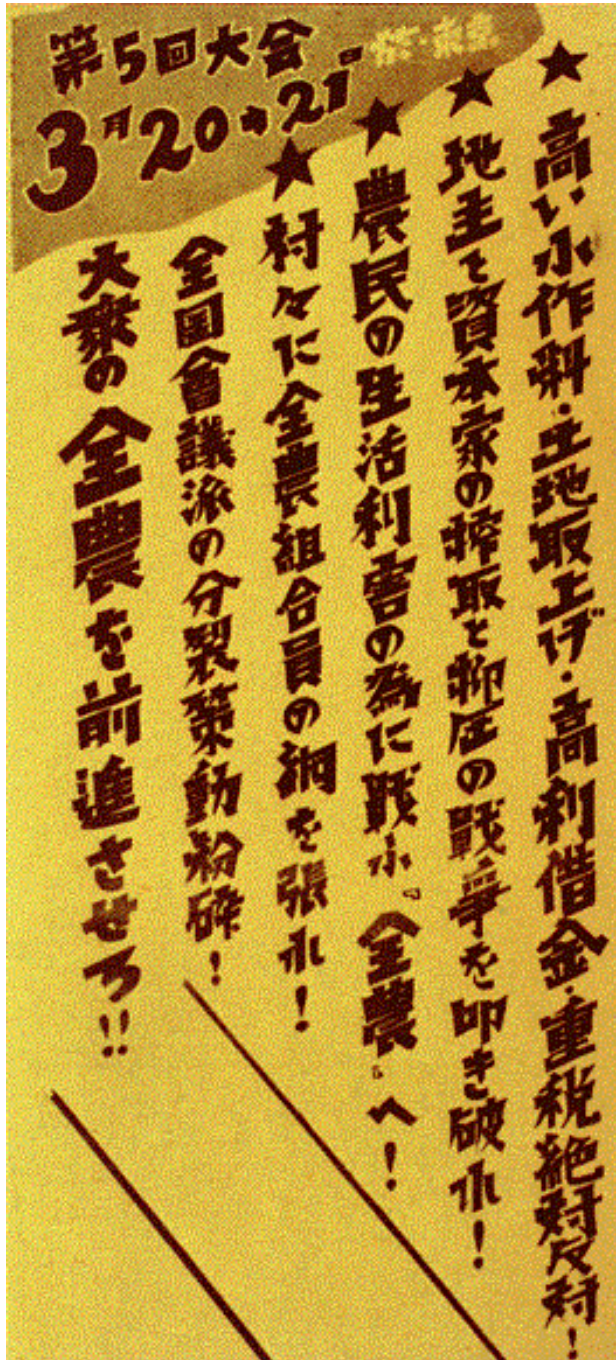 第5回大会
3月20・21日
於・東京
★高い小作料・土地取上げ・高利借金・重税絶対反対!
★地主と資本家の搾取と抑圧の戦争を叩き破れ!
★農民の生活利害の為に戦ふ『全農』へ!
★村々に全農組合員の網を張れ!
全国會議派の分裂策動粉砕!
大衆の全農を前進させろ!!